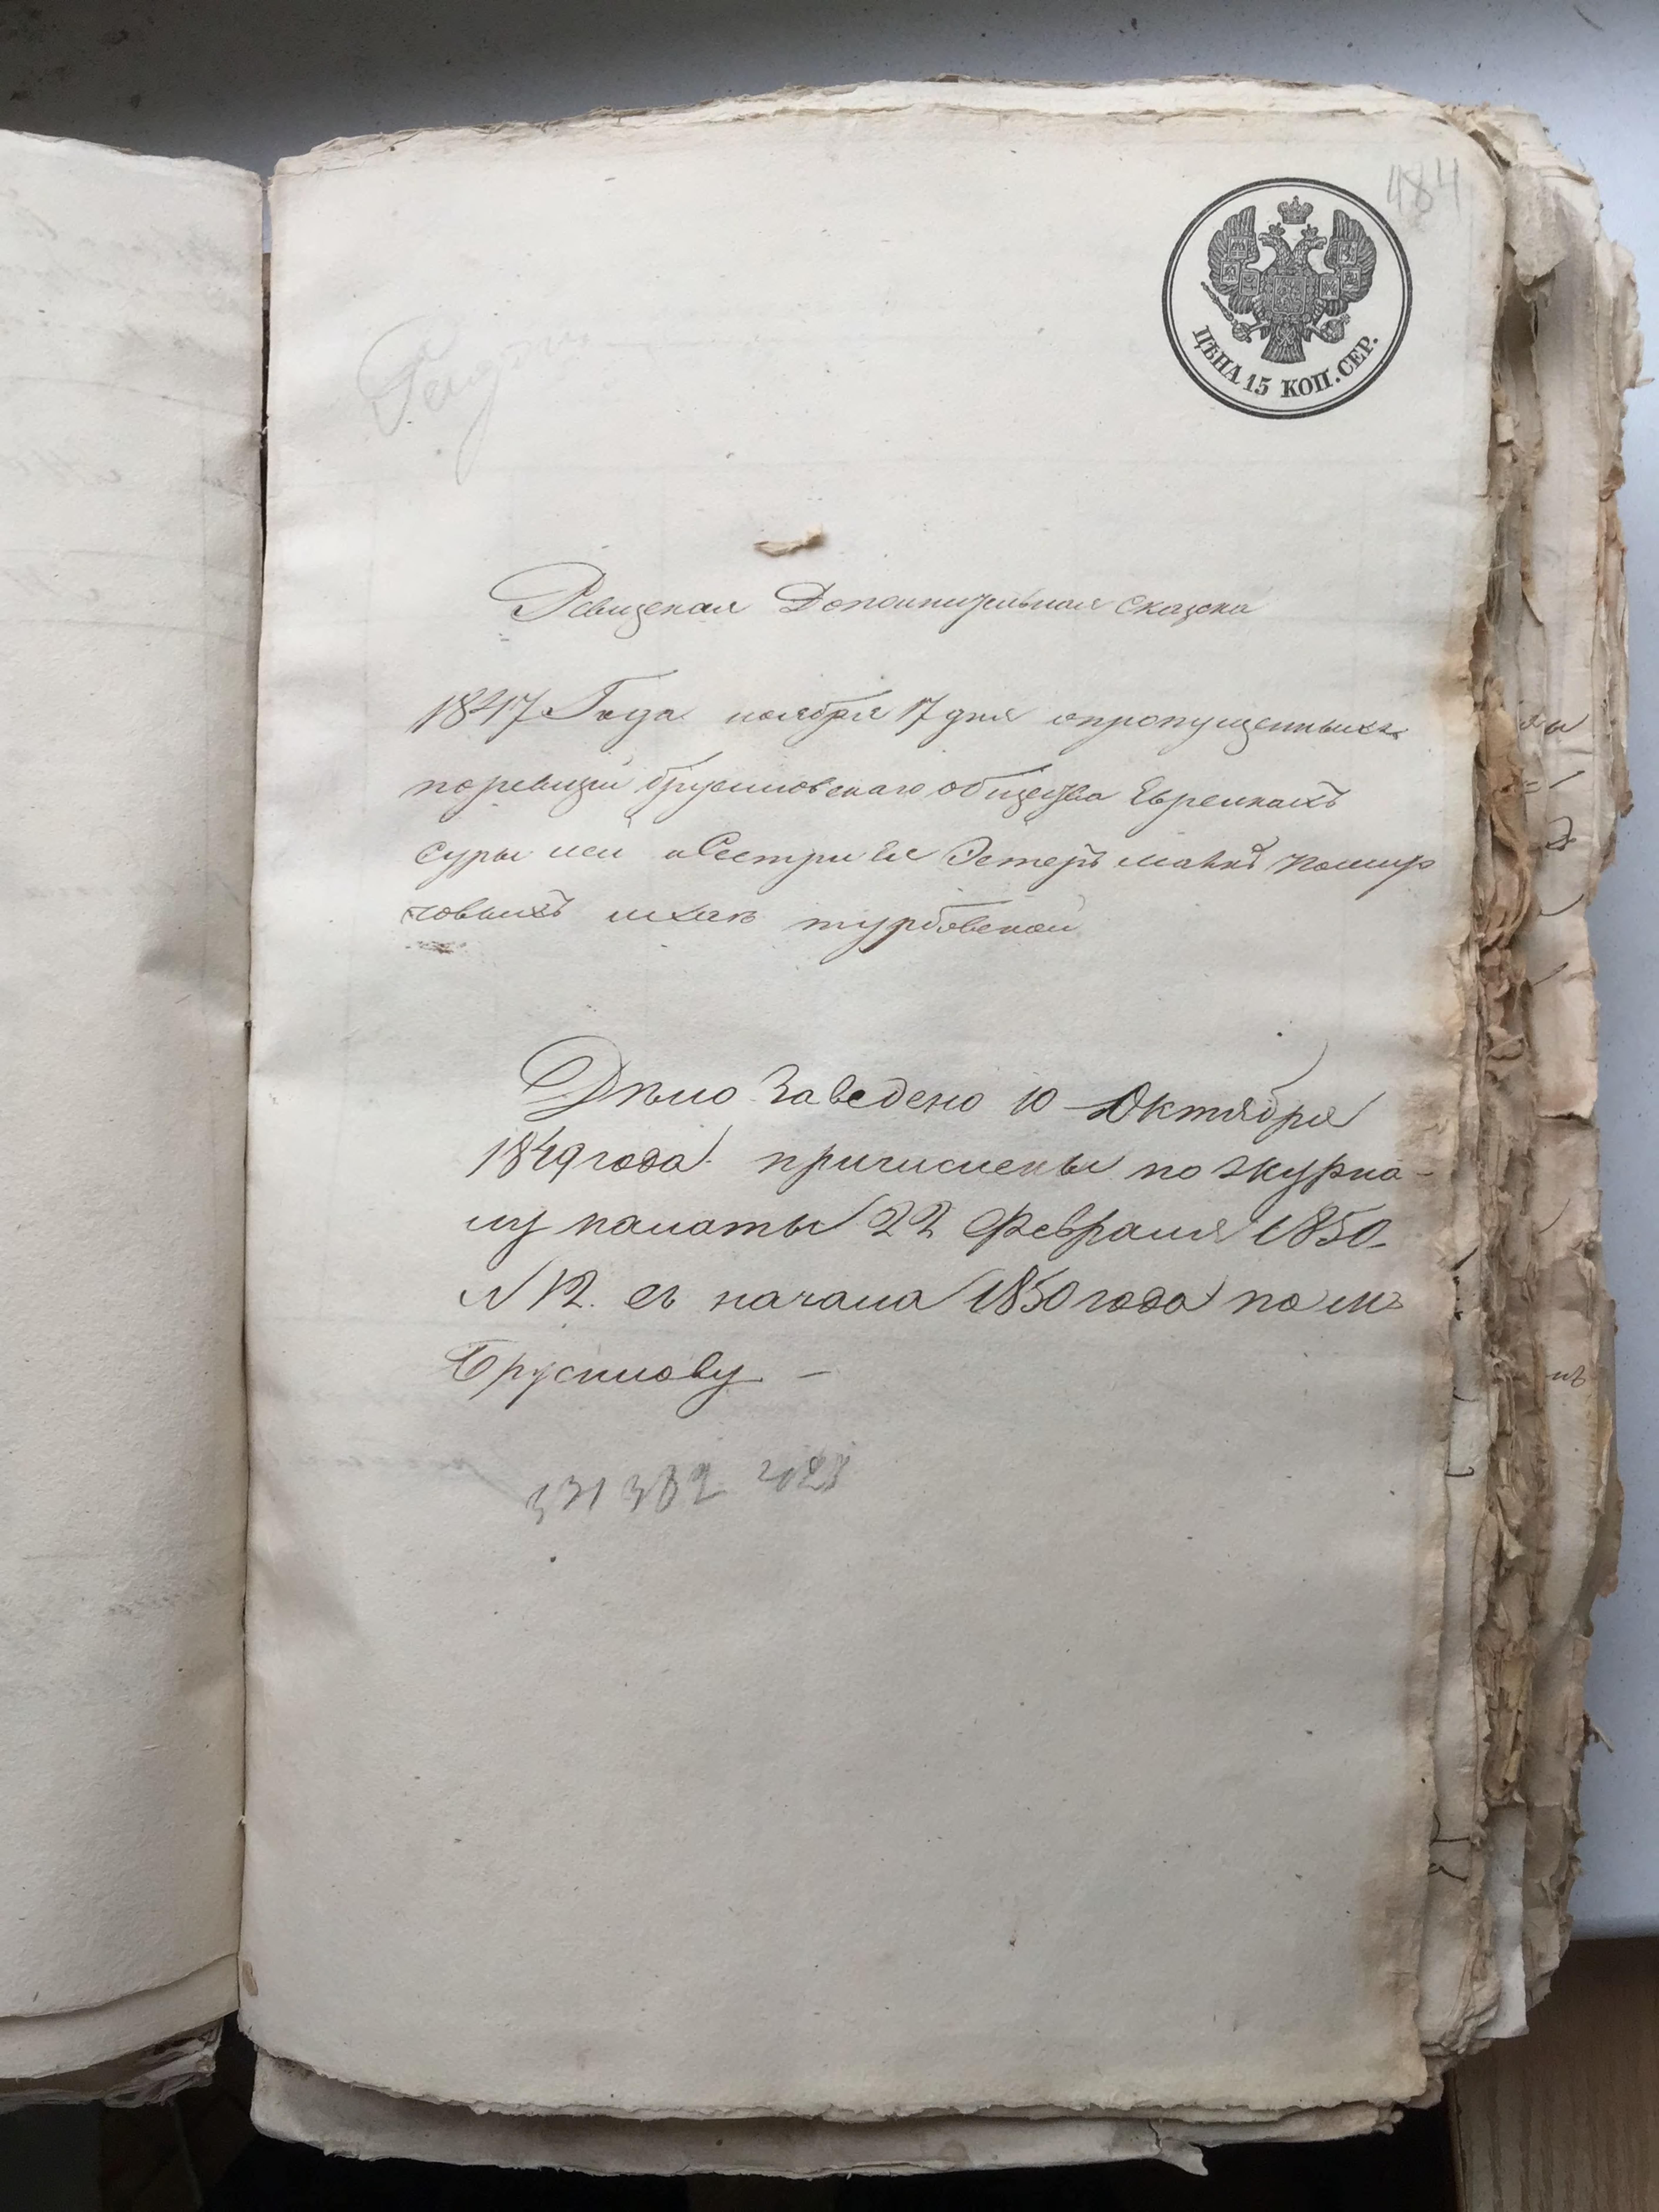 484
ЦѢНА 15 КОП. СЕР.
Ревизская Дополнительная сказка
1847 Года ноября 17 дня опропущенныхъ
поревизіи брусиловскаго общества Евреикахъ
суры леи исестри ея Эстеръ малкѣ
турбовской
Дѣло заведено 10 Октября
1849 года причислены по журна-
лу палаты 22 Февраля 1850
N 12. съ начала 1850 года по м
Брусилову –